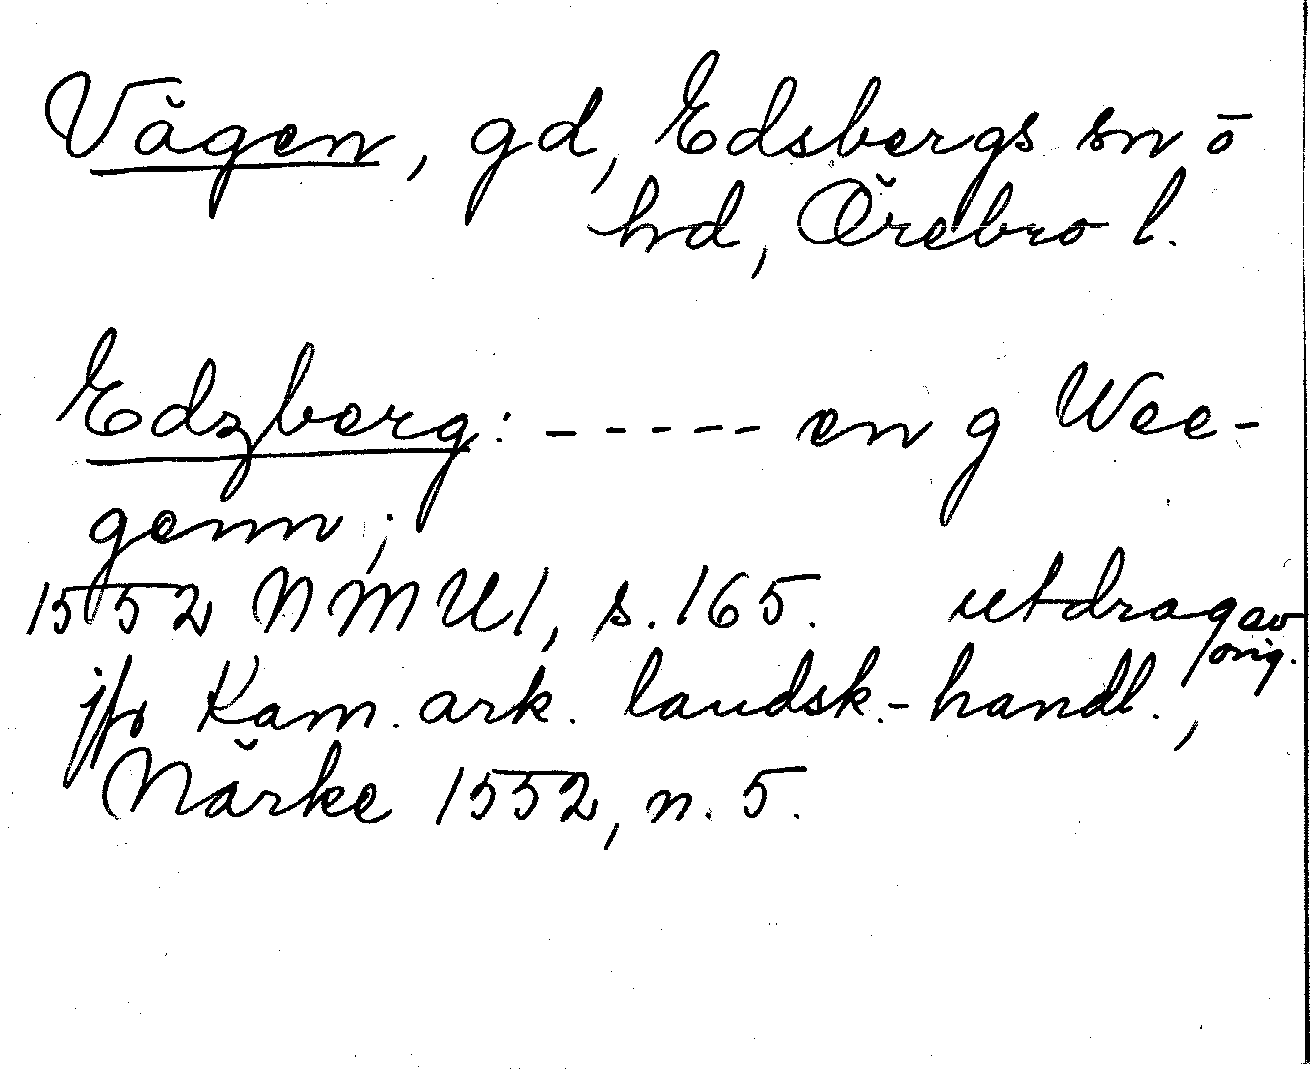 Vägen, gd, Edsbergs sn o
hd, Örebro l.
Edzberg: ----- en g Wee-
genn;
1552 NMU1, s. 165. utdrag av orig.
jfr Kam. ark. landsk.-handl.,
Närke 1552, n. 5.